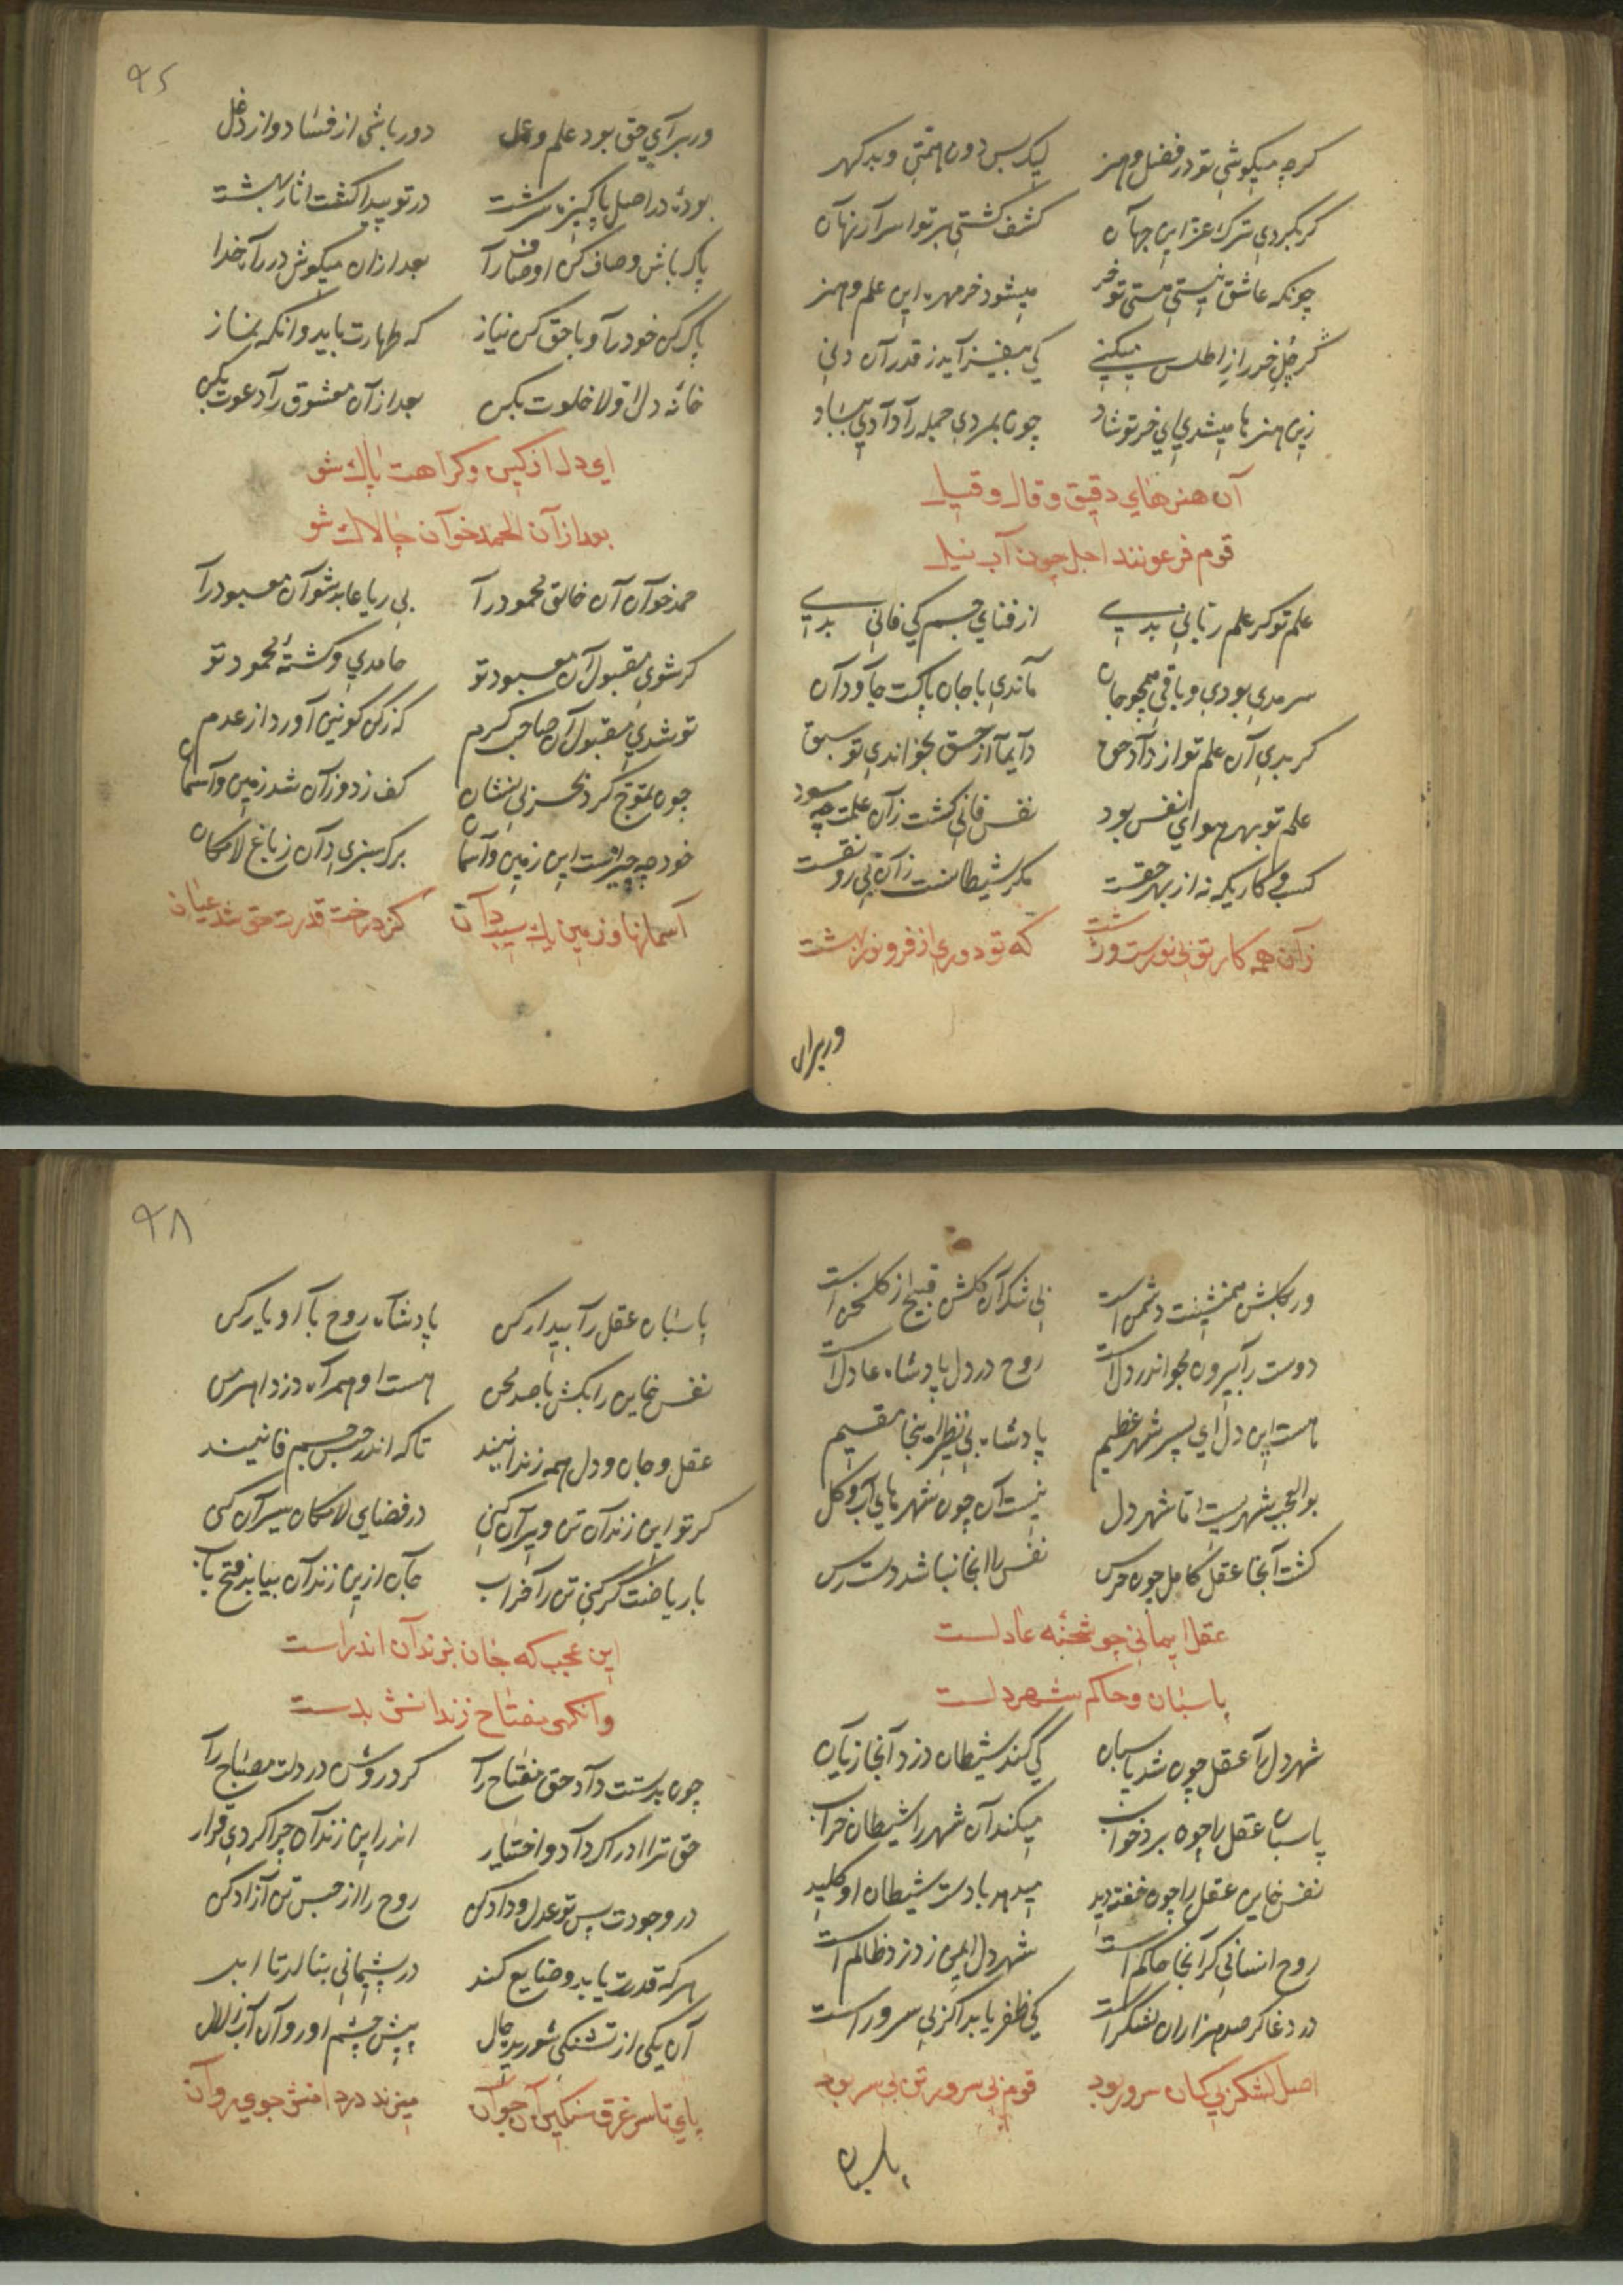 کرچه میکوشی تو در فضل وهنر لیک بس دون همتی وبد کهر
کر بکردی ترک عز این جهان کشف کشتی بر تو اسرار نهان
چونکه عاشق نیستی هستی تو خر میشود خرمهره این علم وهنر
کر جل خر را ز اطلس میکنی کی بیفزاید ز قدر آن دنی
زین هنرها میشدی ای خر تو شاد چون بمردی جمله را دادی بباد
آن هنرهای دقیق و قال و قیل
قوم فرعونند اجل چون آب نیل
علم تو کر علم ربانی بدی از فنای جسم کی فانی بدی
سرمدی بودی وباقی همچو جان ماندی با جان پاکت جاودان
کر بدی آن علم تو از داد حق دایما از حق بخواندی تو سبق
علم تو بهر هوای نفس بود نفس فانی کشت زان علمت چه سود
کسب وکاریکه نه از بهر حقست مکر شیطانست زان بی رونقست
زان همه کار تو بی نورست وزشت که تو دوری از فر ونور بهشت
وربرای
٩۶
وربرای حق بود علم وعمل دور باشی از فساد واز دغل
بودهٔ در اصل پاکیزه سرشت در تو پیدا کشت اثار بهشت
پاک باش وصاف کن اوصاف را بعد ازان میکوش در راه خدا
پاک کن خود را وبا حق کن نیاز که طهارت باید وانکه نماز
خانهٔ دل اولا خلوت بکن بعد ازان معشوق را دعوت بکن
ای دل از کین وکراهت پاک شو
بعد ازان الحمد خوان چالاک شو
حمد خوان آن خالق محمود را بی ریا عابد شو آن معبود را
کر شوی مقبول آن معبود تو حامدی وکشتهٔ محمود تو
تو شدی مقبول آن صاحب کرم که ز کن کونین آورد از عدم
چون تموج کرد بحر بی نشان کف زد وزان شد زمین وآسمان
خود چه چیزست این زمین وآسمان برک سبزی دان ز باغ لامکان
آسمانها وزمین یک سیب دان کز درخت قدرت حق شد عیان
ور بکلشن همنشینت دشمن است بی شک آن کلشن قبیح از کلخن است
دوست را بیرون مجو اندر دل است روح در دل پادشاه عادل است
هست این دل ای پسر شهر عظیم پادشاه بی نظیر اینجا مقیم
بو العجب شهریست اما شهر دل نیست آن چون شهرهای آب وکل
کشت آنجا عقل کامل چون حرس نفس را انجا نباشد دست رس
عقل ایمانی چو شحنهٔ عادلست
پاسبان وحاکم شهر دلست
شهر دل را عقل چون شد پاسبان کی کند شیطان دزد آنجا زیان
پاسبان عقل را چون برد خواب میکند آن شهر را شیطان خراب
نفس خاین عقل را چون خفته دید میدهد بادست شیطان او کلید
روح انسانی کر آنجا حاکم است شهر دل ایمن ز دزد وظالم است
در دغا کر صد هزاران لشکر است کی ظفر یابد اکر بی سرور است
اصل لشکر بی کمان سرور بود قوم بی سرور تن بی سر بود
پاسبان
٩٨
پاسبان عقل را بیدار کن پادشاه روح با او یار کن
نفس خاین را بکش با صد محن هست او همراه دزد اهرمن
عقل وجان ودل همه زندانیند تا که اندر حبس جسم فانیند
کر تو این زندان تن ویران کنی در فضای لامکان سیران کنی
با ریاضت کر کنی تن را خراب جان ازین زندان بیابد فتح باب
این عجب که جان بزندان اندراست
وانکهی مفتاح زندانش بدست
چون بدستت داد حق مفتاح را کرد روشن در دلت مصباح را
حق ترا ادراک داد واختیار اندر این زندان چرا کردی قرار
در وجودت پس تو عدل وداد کن روح را از حبس تن آزاد کن
هر که قدرت یابد وضایع کند در پشیمانی بنالد تا ابد
آن یکی از تشنکی شوریده حال پیش چشم او روان آب زلال
پای تا سر غرق سنکین آن جوان میزند در دامنش جوی روان